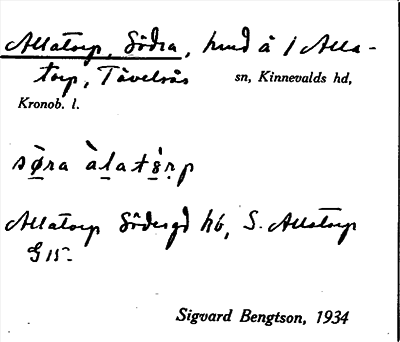 Allatorp, Södra, hmd å 1 Alla-
torp, Tävelsås sn, Kinnevalds hd,
Kronob. l.
Allatorp Södergd hb, S. Allatorp
G 15-
Sigvard Bengtson, 1934